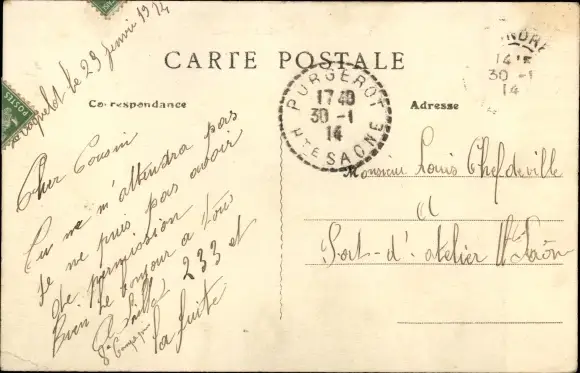 le 29 janvier 1914
CARTE POSTALE
Correspondance
Adresse
PURGEROT
1740
30 -1
14
HTE SAONE
NDRE
14'5
30 -1
14
POSTES
Cher Cousin
Tu ne m'attendra pas
Je ne puis pas avoir
de permission
Bien le bonjour a tous
233 et
la fuite
8e Compagnie
Monsieur Louis Chefdeville
a
Port-d'atelier Hte Saône